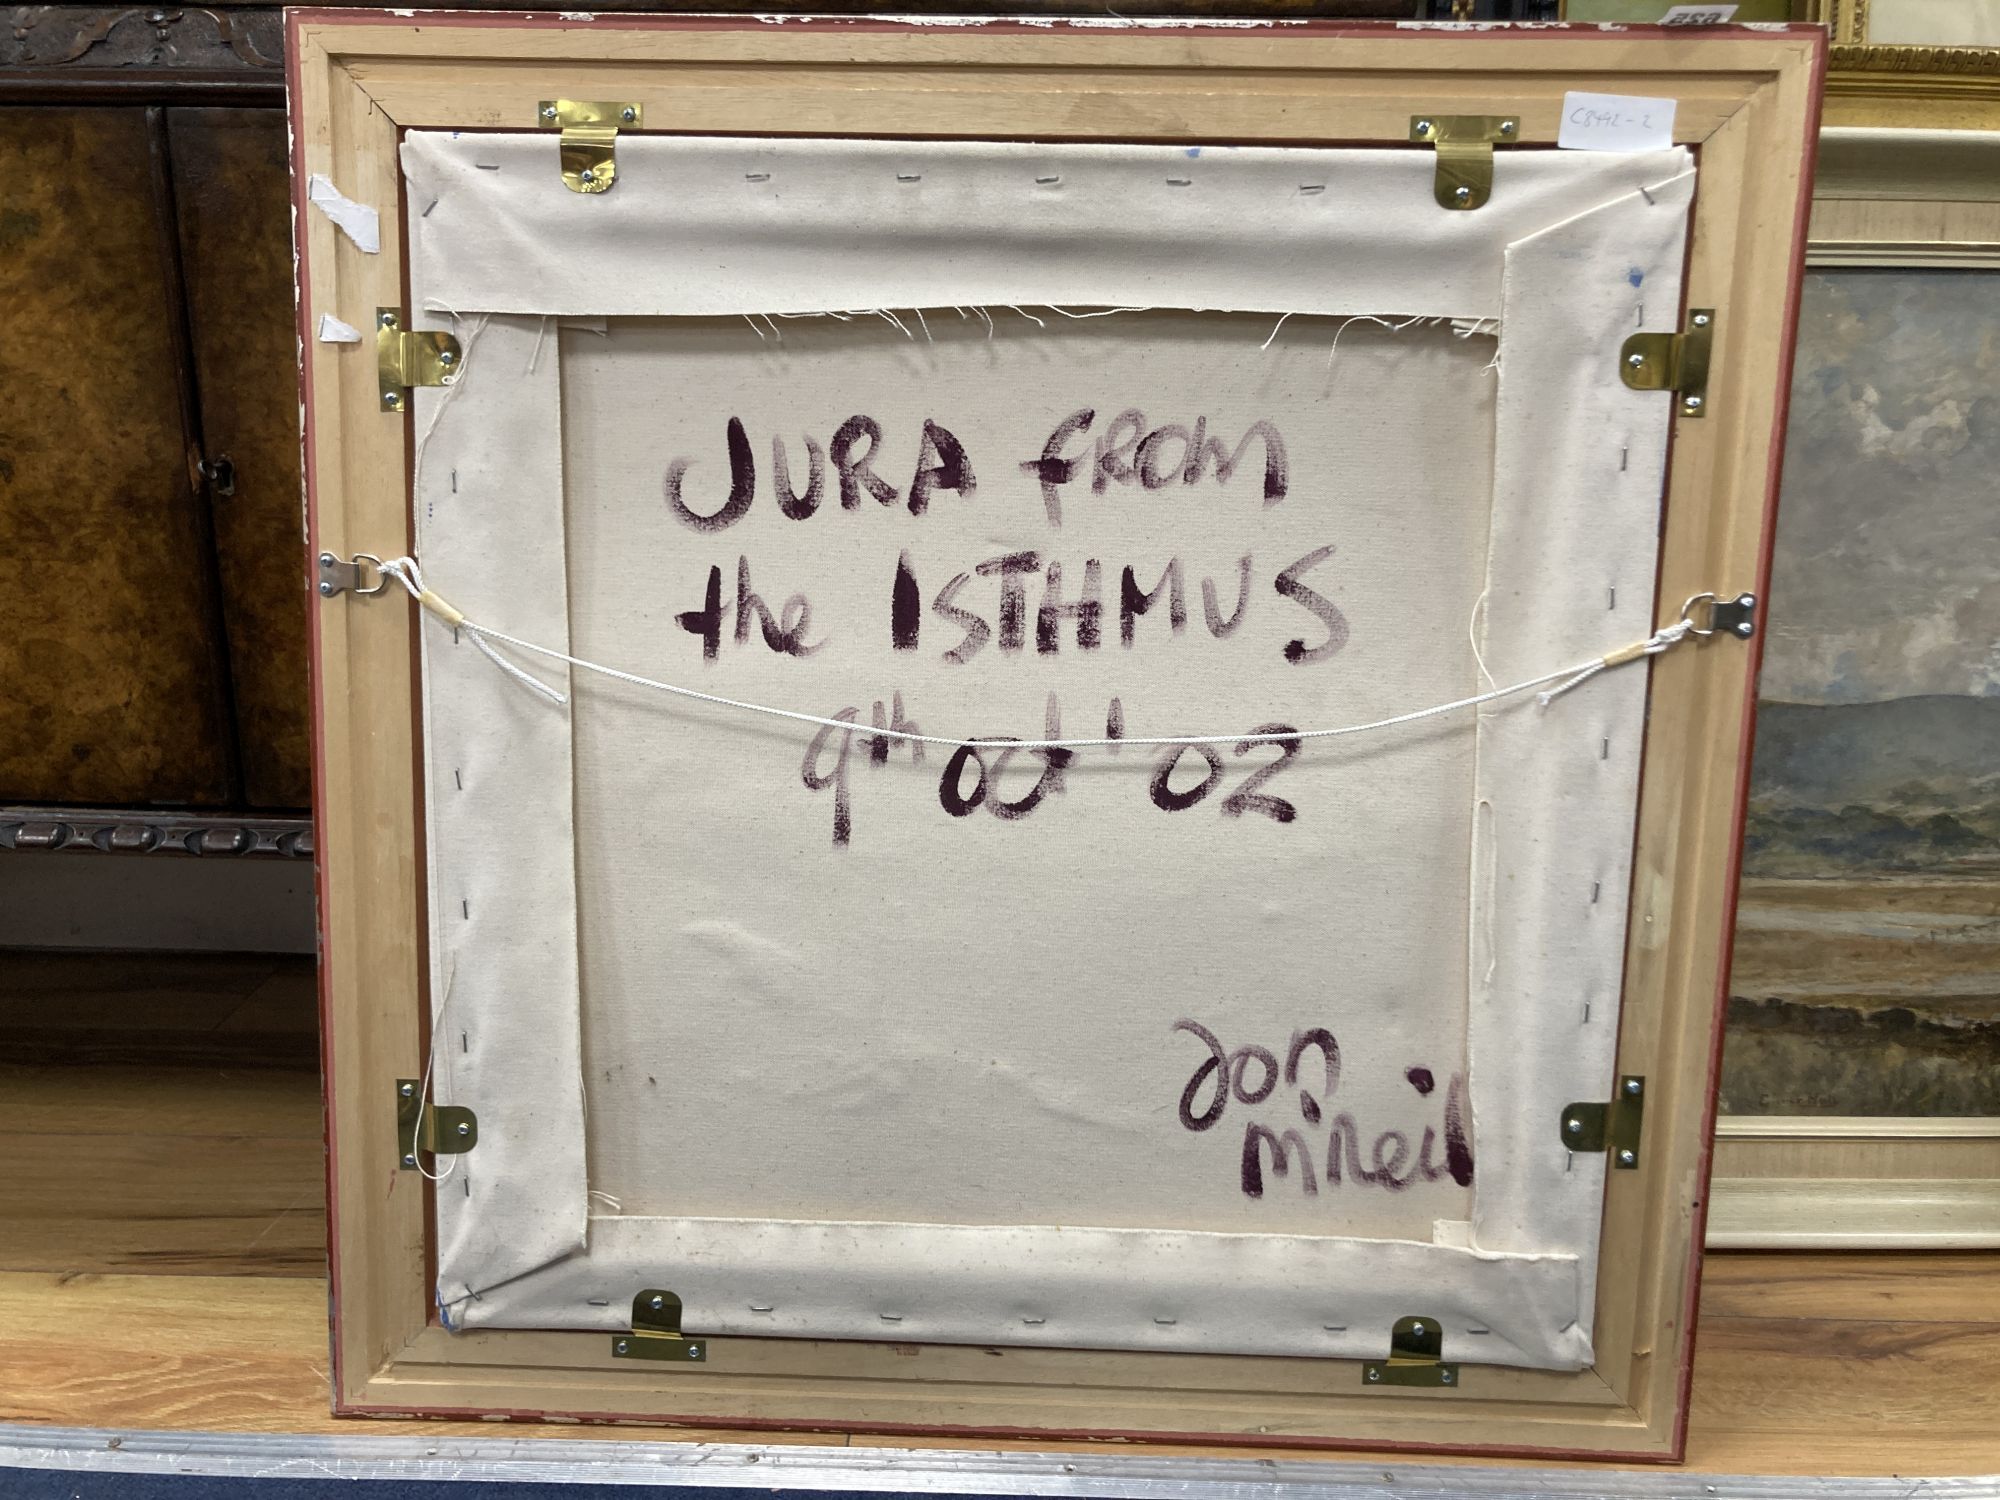 C8442-2
JURA FROM
the ISTHMUS
9th Oct '02
Jon
m'neil